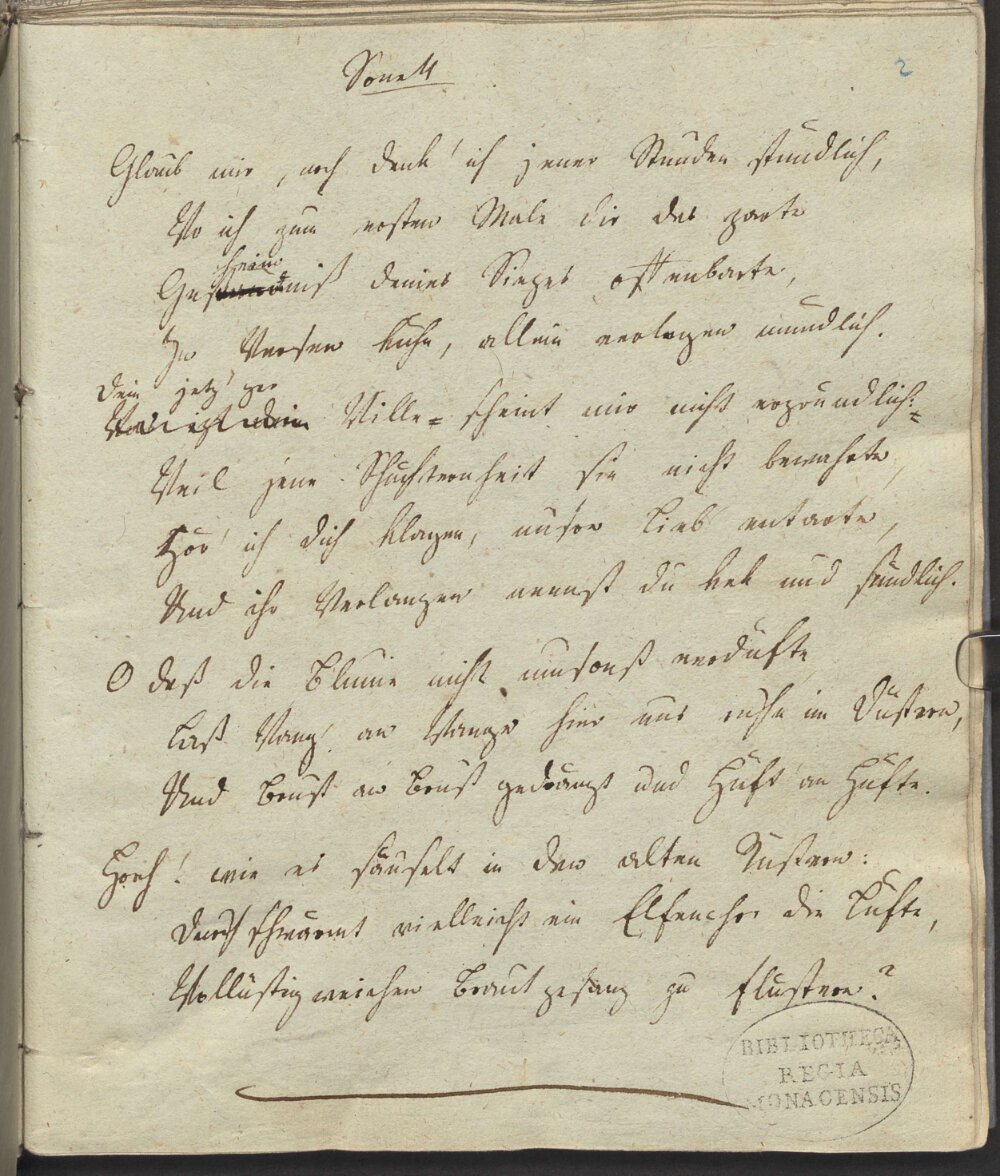 Sonett
2
Glaub mir, noch denk' ich jener Stunden stündlich,
Wo ich zum ersten Male dir das zarte
heim
Geständniß deines Sieges offenbarte,
In Versen kühn, allein verlegen mündlich.
Dein jetz'ger
Wille scheint mir nicht ergründlich:
Weil jene Schüchternheit sie nicht bewahrte,
Hör' ich dich klagen, unsre Lieb' entarte,
Und ihr Verlangen nennst du kek und sündlich.
O daß die Blume nicht umsonst verdüfte
Laß Wang' an Wange hier uns ruhn im Düstern,
Und Brust an Brust gedrängt und Hüft' an Hüfte.
Horch! wie es säuselt in den alten Rüstern:
Durchschwärmt vielleicht ein Elfenchor die Lüfte,
Wollüstig weichen Brautgesang zu flüstern?
BIBLIOTHECA
REGIA
MONACENSIS